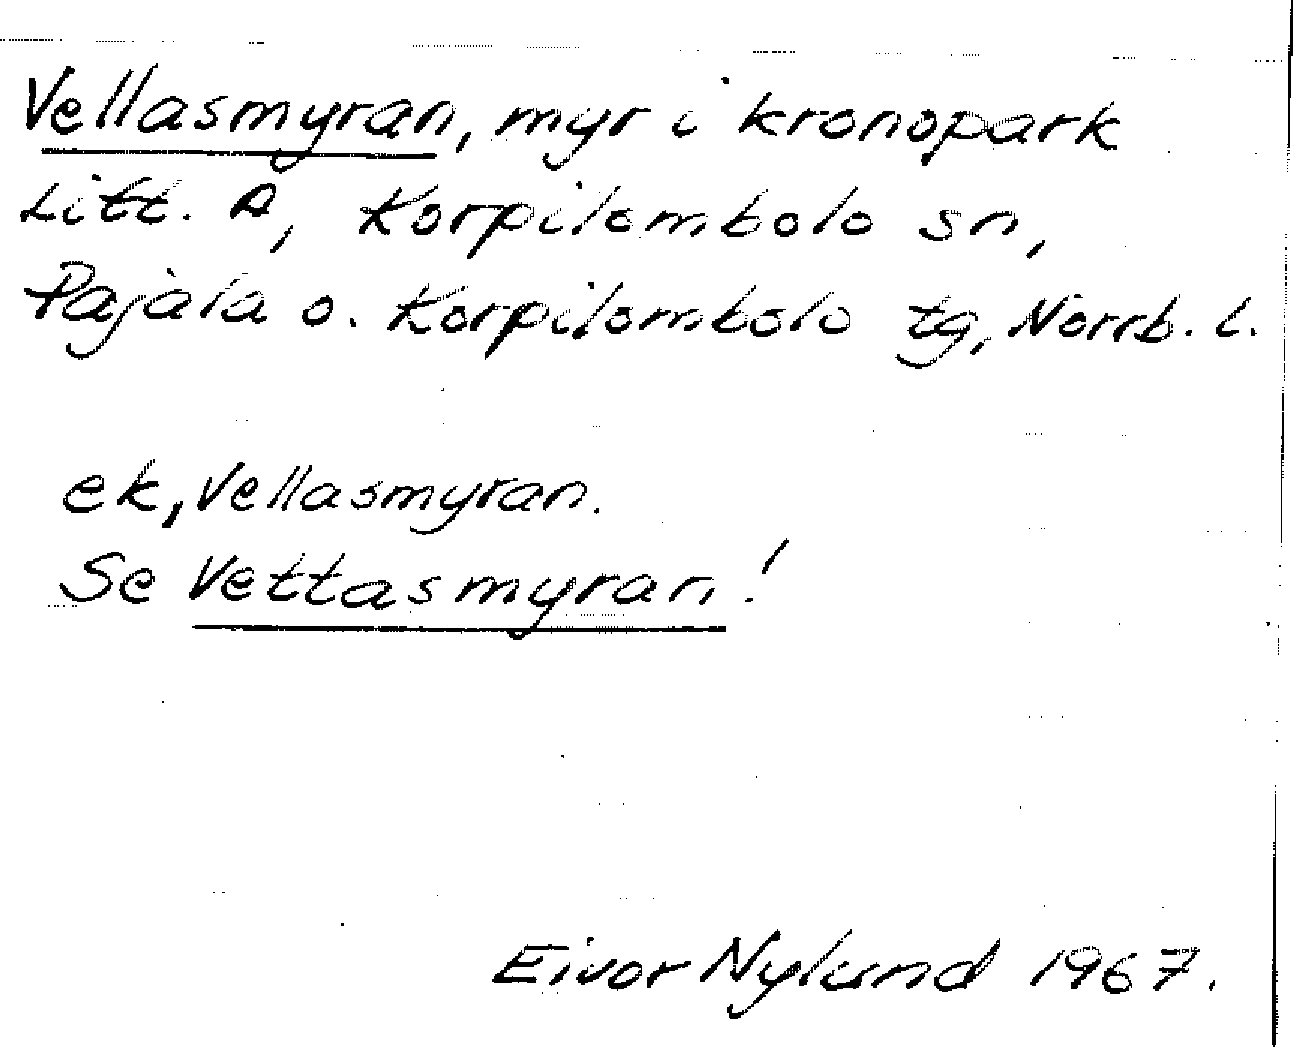 Vellasmyran, myr i kronopark
Litt. A, Korpilombolo sn,
Pajala o. Korpilombolo tg, Norrb. l.
ek, Vellasmyran.
Se Vettasmyran!
Eivor Nylund 1967.